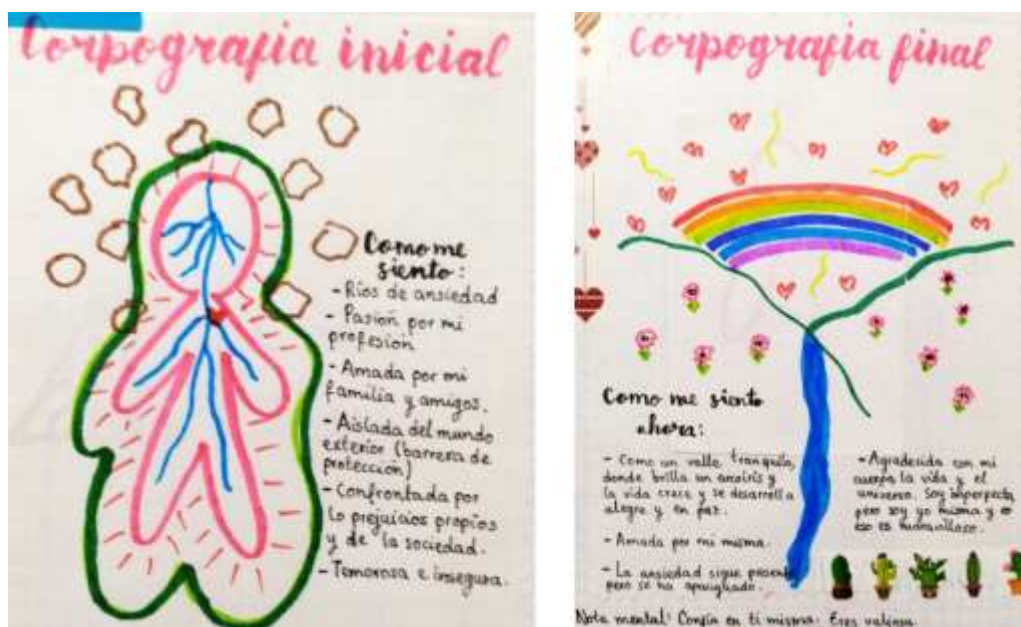 Corpografia inicial
Como me
siento:
- Ríos de ansiedad
- Pasión por mi
profesión
- Amada por mi
familia y amigos.
- Aislada del mundo
exterior (barrera de
protección)
- Confrontada por
lo prejuicios propios
y de la sociedad.
- Temorosa e insegura.
Corpografia final
Como me siento
ahora:
- Como un valle tranquilo,
donde brilla un arcoíris y
la vida crece y se desarrolla
alegre y en paz.
- Amada por mi misma.
- La ansiedad sigue presente
pero se ha apaciguado.
- Agradecida con mi
cuerpo la vida y el
universo. Soy imperfecta
pero soy yo misma y
eso es maravilloso.
Nota mental: Confía en ti misma. Eres valiosa.